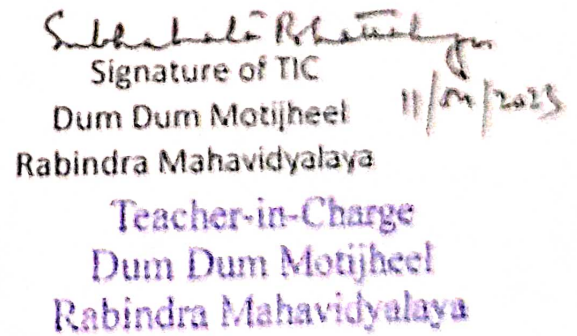 Signature of TIC
Dum Dum Motijheel
Rabindra Mahavidyalaya
Teacher-in-Charge
Dum Dum Motijheel
Rabindra Mahavidyalaya